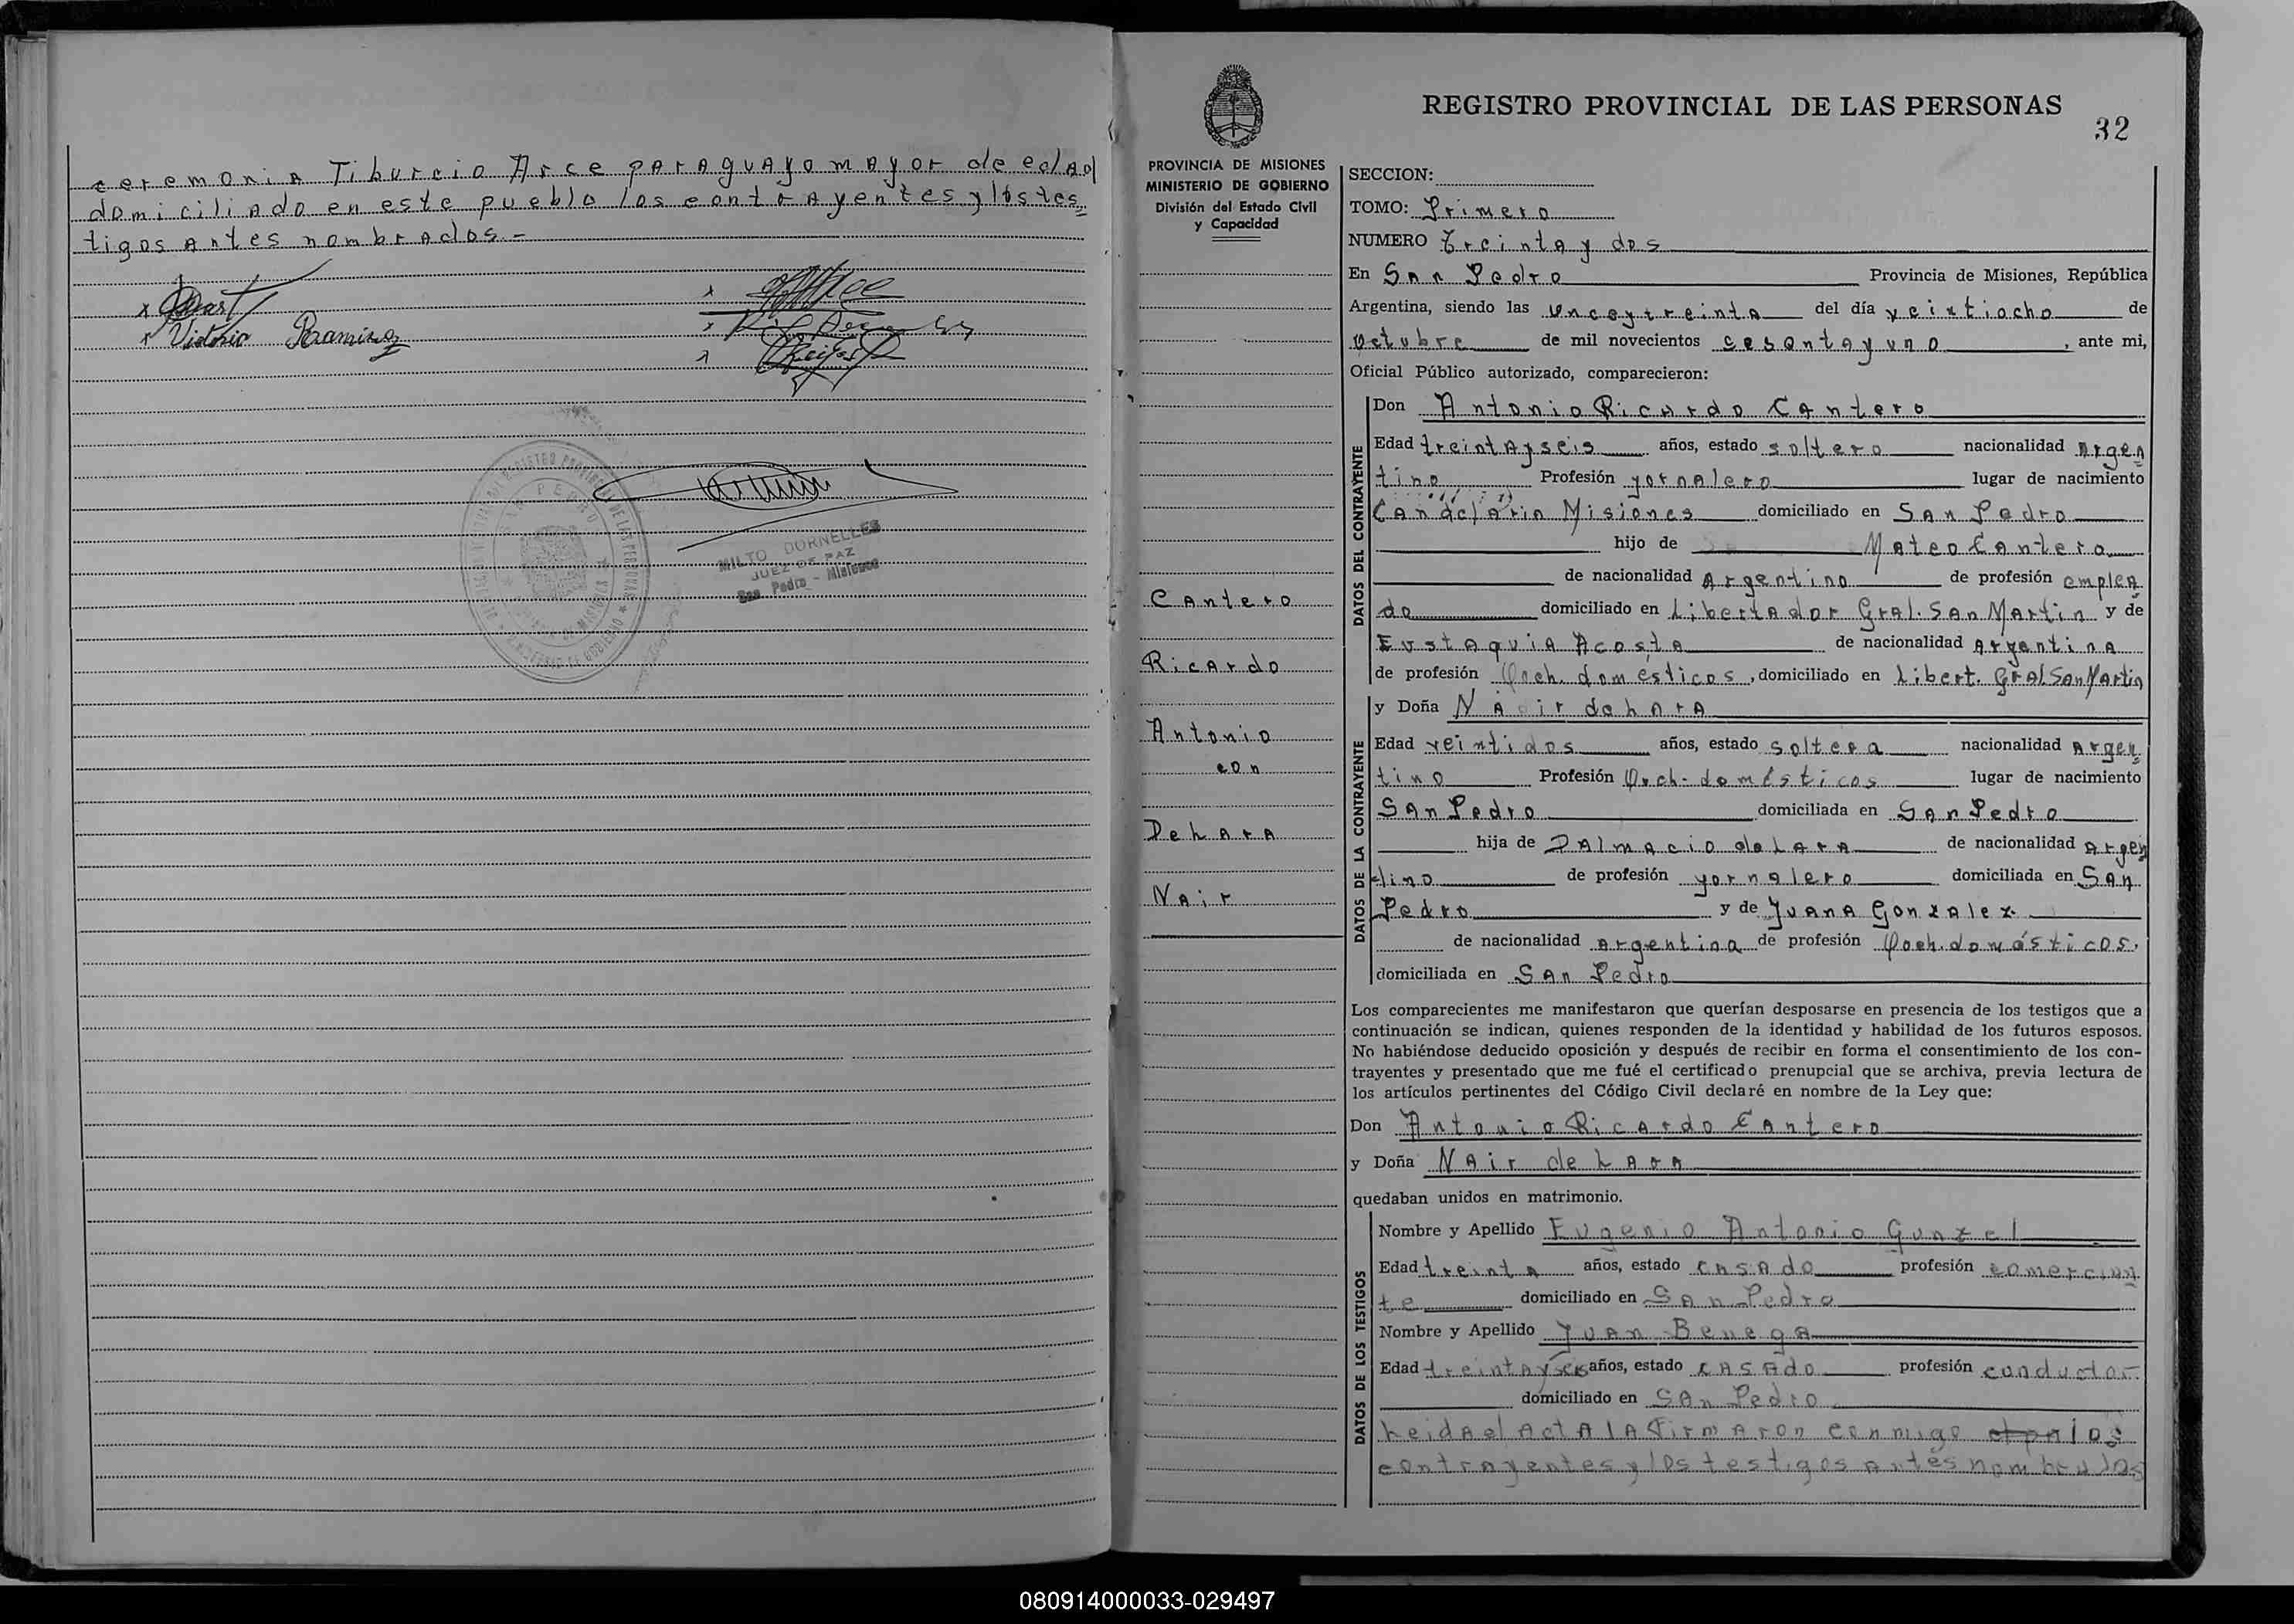 ceremonia Tiburcio Arce paraguayo mayor de edad
domiciliado en este pueblo los contrayentes y los tes
tigos antes nombrados.-
Victoria Ramirez
MILTO DORNELLES
JUEZ DE PAZ
San Pedro - Misiones
REGISTRO PROVINCIAL DE LAS PERSONAS
32
PROVINCIA DE MISIONES
MINISTERIO DE GOBIERNO
División del Estado Civil
y Capacidad
Cantero
Ricardo
Antonio
con
De Lara
Nair
SECCION:
TOMO: Primero
NUMERO Treinta y dos
En San Pedro Provincia de Misiones, República
Argentina, siendo las onceytreinta del día veintiocho de
octubre de mil novecientos sesenta y uno, ante mi,
Oficial Público autorizado, comparecieron:
DATOS DEL CONTRAYENTE
Don Antonio Ricardo Cantero
Edad treinta y seis años, estado soltero nacionalidad Argen
tino Profesión yornalero lugar de nacimiento
Candelaria Misiones domiciliado en San Pedro
hijo de Mateo Cantero
de nacionalidad Argentino de profesión emplea
do domiciliado en Libertador Gral. San Martin y de
Eustaquia Acosta de nacionalidad Argentina
de profesión Qech. domésticos, domiciliado en Libert. Gral San Martin
DATOS DE LA CONTRAYENTE
y Doña Nair de Lara
Edad veintidos años, estado soltera nacionalidad Argen
tino Profesión Qech- domésticos lugar de nacimiento
San Pedro domiciliada en San Pedro
hija de Dalmacio de Lara de nacionalidad Argen
tino de profesión yornalero domiciliada en San
Pedro y de Juana Gonzalez
de nacionalidad Argentina de profesión Qech. domésticos.
domiciliada en San Pedro
Los comparecientes me manifestaron que querían desposarse en presencia de los testigos que a
continuación se indican, quienes responden de la identidad y habilidad de los futuros esposos.
No habiéndose deducido oposición y después de recibir en forma el consentimiento de los con-
trayentes y presentado que me fué el certificado prenupcial que se archiva, previa lectura de
los artículos pertinentes del Código Civil declaré en nombre de la Ley que:
Don Antonio Ricardo Cantero
y Doña Nair de Lara
quedaban unidos en matrimonio.
DATOS DE LOS TESTIGOS
Nombre y Apellido Eugenio Antonio Gunzel
Edad treinta años, estado casado profesión comercian
te domiciliado en San Pedro
Nombre y Apellido Juan Benega
Edad treinta y seis años, estado casado profesión conductor
domiciliado en San Pedro
Leida el Acta la Firmaron conmigo los
contrayentes y los testigos antes nombrados
080914000033-029497